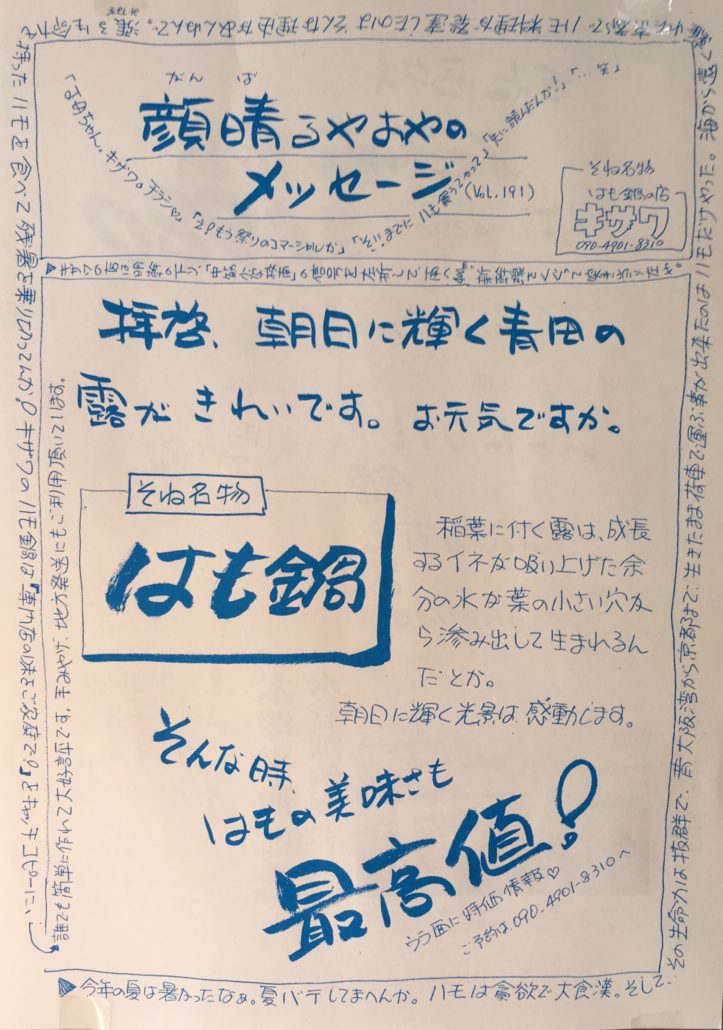 がんば
顔晴るやおやの
メッセージ(Vol.191)
「お母ちゃん。キザワのチラシ♡」
「えびもう祭りのコマーシャルか」
「先に読んだんか!」「…笑」
そね名物
はも鍋の店
キザワ
090-4901-8310
拝啓、朝日に輝く青田の
露がきれいです。お元気ですか。
そね名物
はも鍋
稲葉に付く露は、成長
するイネが吸い上げた余
分の水が葉の小さい穴か
ら滲み出して生まれるん
だとか。
朝日に輝く光景は、感動します。
そんな時、
はもの美味さも
最高値!
ウラ面に特価情報♡
ご予約は、090-4901-8310へ
▶今年の夏は暑かったなぁ。夏バテしてまへんか。ハモは貪欲で大食漢。そして、
その生命力は抜群で、昔大阪湾から京都まで、生きたまま荷車で運ぶ事が出来たのはハモだけやった。海から遠く
離れた京都で、ハモ料理が発達したのはそんな理由があんねんで。強い生命力
を持ったハモを食べて残暑を乗り切ってんか。キザワのハモ鍋は『専門店の味をご家庭で!』をキャッチコピーに、
誰でも簡単に作れて大好評です。手みやげ、地方発送にもご利用頂いています。